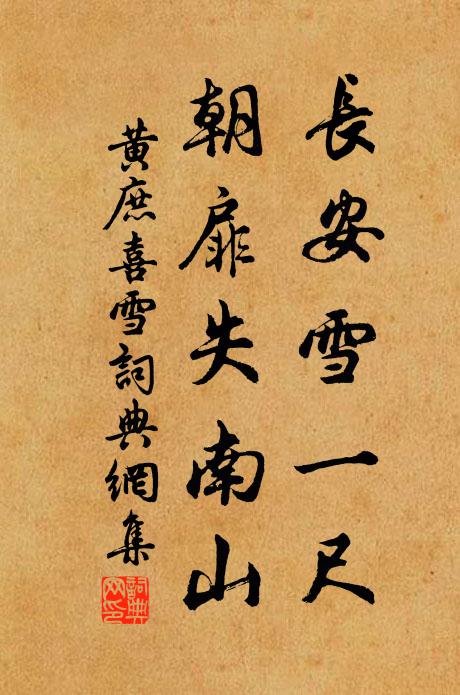 長安雪一尺
朝扉失南山
黃庶喜雪詞典網集
詞典網印